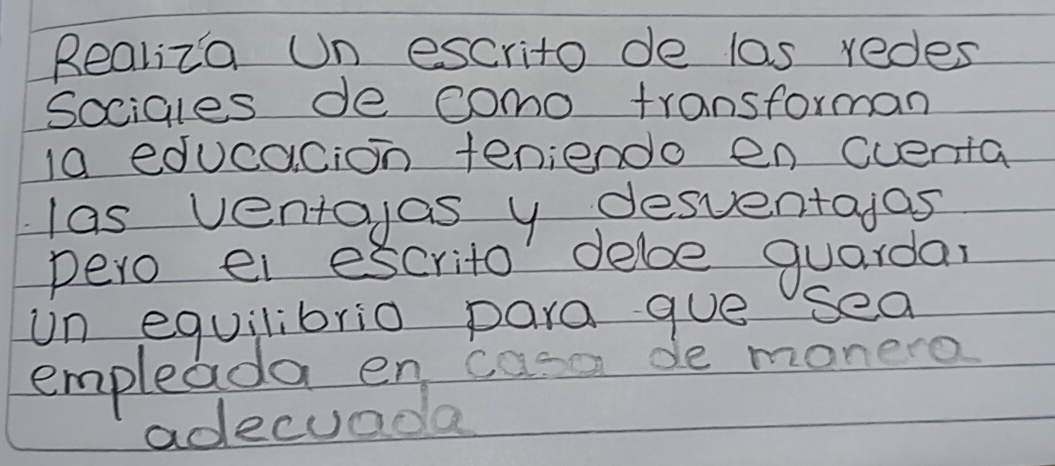 Realiza un escrito de las redes
sociales de como transforman
la educación teniendo en cuenta
las ventajas y desventajas
pero el escrito debe guardar
un equilibrio para que sea
empleada en casa de manera
adecuada